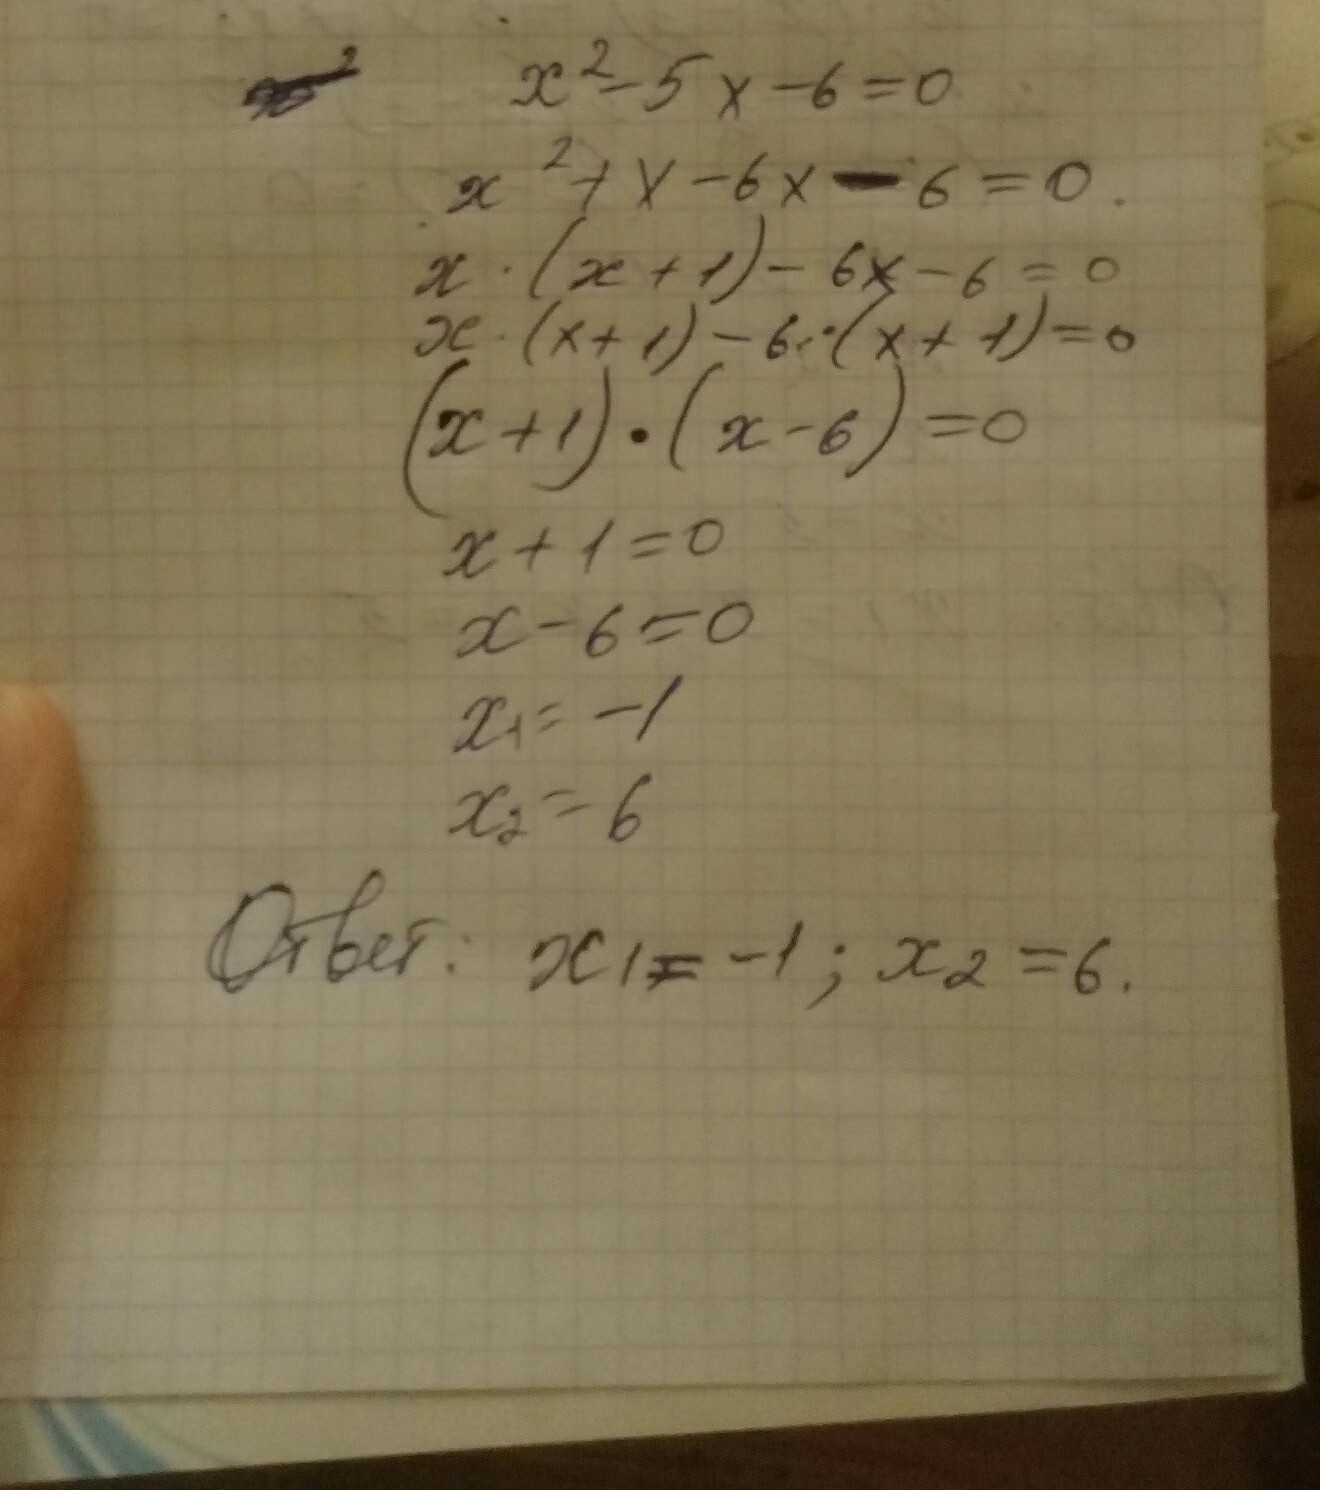 x² - 5x - 6 = 0
x² + x - 6x - 6 = 0.
x · (x + 1) - 6x - 6 = 0
x · (x + 1) - 6 · (x + 1) = 0
(x + 1) · (x - 6) = 0
x + 1 = 0
x - 6 = 0
x₁ = -1
x₂ = 6
Ответ: x₁ = -1; x₂ = 6.